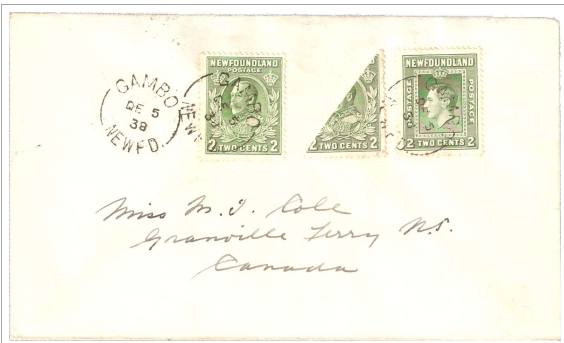 GAMBO
DE 5
38
NEWF'D.
NEWFOUNDLAND
POSTAGE
2 TWO CENTS 2
2 TWO CENTS 2
NEWFOUNDLAND
POSTAGE POSTAGE
2 TWO CENTS 2
Miss M. J. Cole
Granville Ferry N.S.
Canada